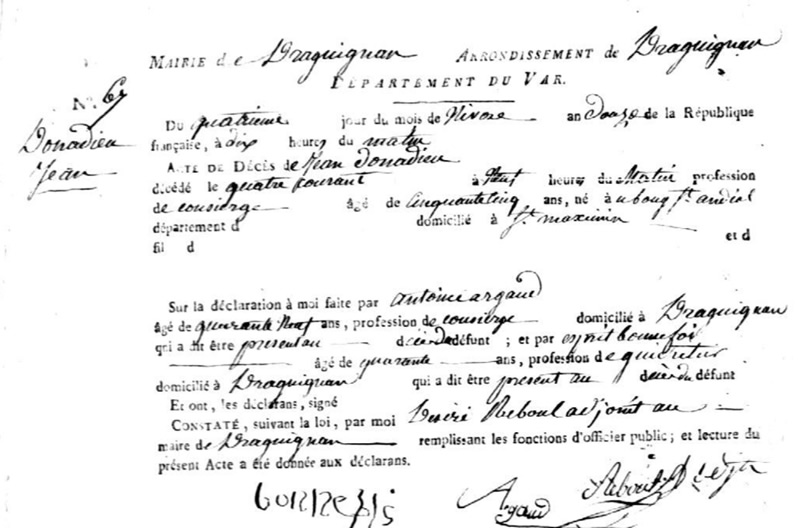 MAIRIE de Draguignan ARRONDISSEMENT de Draguignan
DÉPARTEMENT DU VAR.
N.º 67
Donadieu
Jean
Du quatrieme jour du mois de Nivose an douze de la République
française, à dix heures du matin
ACTE DE DÉCÈS de Jean donadieu
décédé le quatre courant à Neuf heures du Matin profession
de consierge âgé de Cinquante cinq ans, né à au bourg St. andiol
département d domicilié à St. maximin
fil d et d
Sur la déclaration à moi faite par antoine argaud
âgé de quarante Neuf ans, profession de consierge domicilié à Draguignan
qui a dit être present au décès du défunt ; et par esprit bonnefoi
âgé de quarante ans, profession de
domicilié à Draguignan qui a dit être present au décès du défunt
Et ont, les déclarans, signé
CONSTATÉ, suivant la loi, par moi Desiré Reboul adjoint au
maire de Draguignan remplissant les fonctions d'officier public ; et lecture du
présent Acte a été donnée aux déclarans.
Argaud Reboul